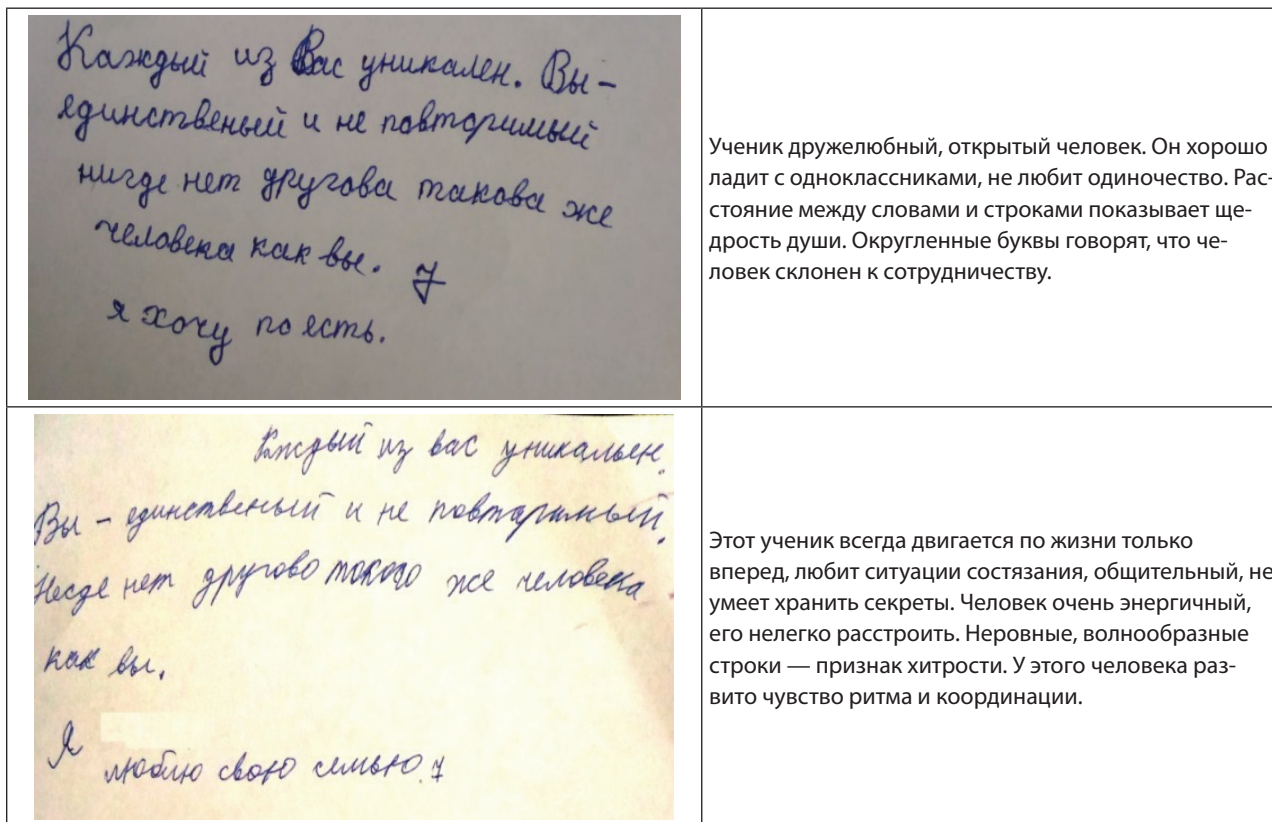 Каждый из Вас уникален. Вы –
единственый и не повторимый
нигде нет другова такова же
человека как вы. 7
я хочу по есть.
Ученик дружелюбный, открытый человек. Он хорошо
ладит с одноклассниками, не любит одиночество. Рас-
стояние между словами и строками показывает ще-
дрость души. Округленные буквы говорят, что че-
ловек склонен к сотрудничеству.
Каждый из вас уникальен.
Вы – единственый и не повторимый.
Несде нет другово токого же человека
как вы.
Я люблю свою семью. 7
Этот ученик всегда двигается по жизни только
вперед, любит ситуации состязания, общительный, не
умеет хранить секреты. Человек очень энергичный,
его нелегко расстроить. Неровные, волнообразные
строки — признак хитрости. У этого человека раз-
вито чувство ритма и координации.